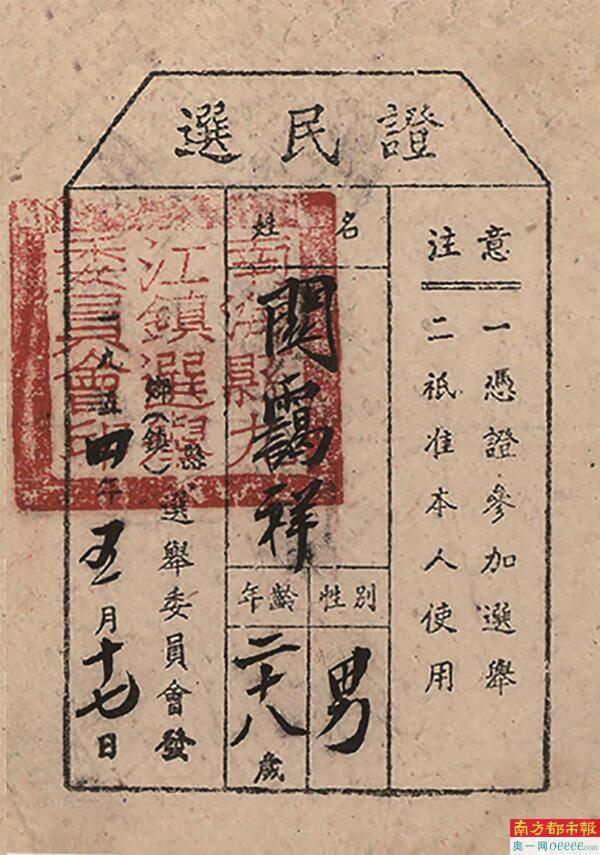 選民證
注意
一憑證參加選舉
二祇准本人使用
姓名
關靄祥
性別
男
年齡
二十八歲
縣
鄉(鎮)選舉委員會發
一九五四年五月十七日
南海縣九
江鎮選舉
委員會印
南方都市報
奥一网oeeee.com